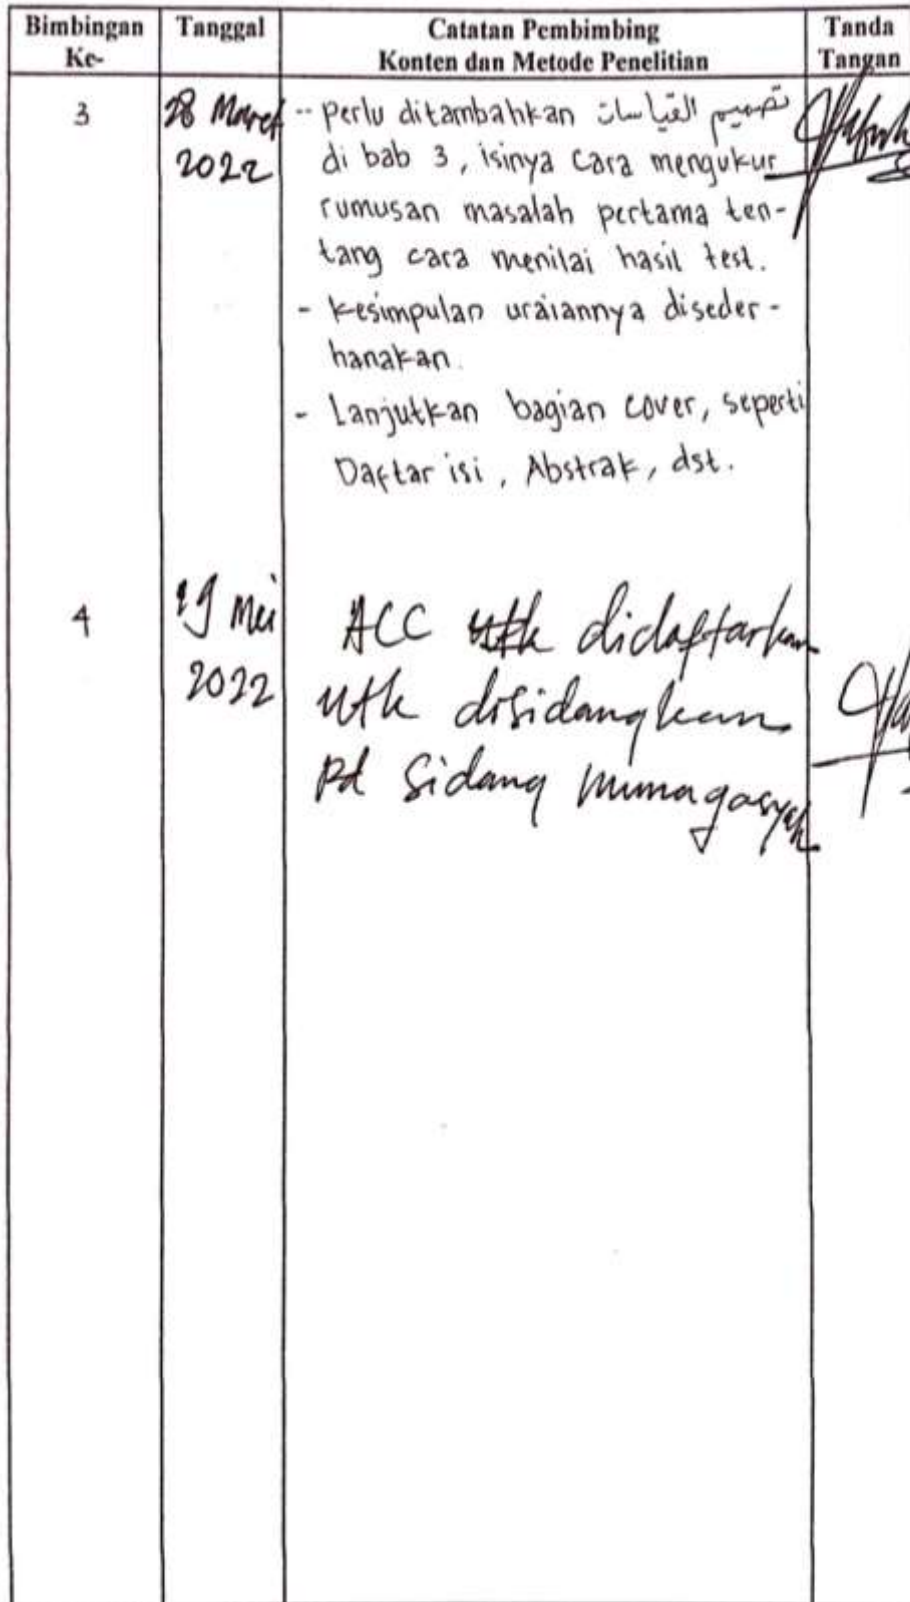 Bimbingan Ke-
Tanggal
Catatan Pembimbing
Konten dan Metode Penelitian
Tanda Tangan
3
28 Maret
2022
-- Perlu ditambahkan تصميم القياسات
di bab 3, isinya cara mengukur
rumusan masalah pertama ten-
tang cara menilai hasil test.
- Kesimpulan uraiannya diseder-
hanakan.
- Lanjutkan bagian cover, seperti
Daftar isi, Abstrak, dst.
4
19 Mei
2022
ACC utk didaftarkan
utk disidangkan
pd Sidang Munaqasyah